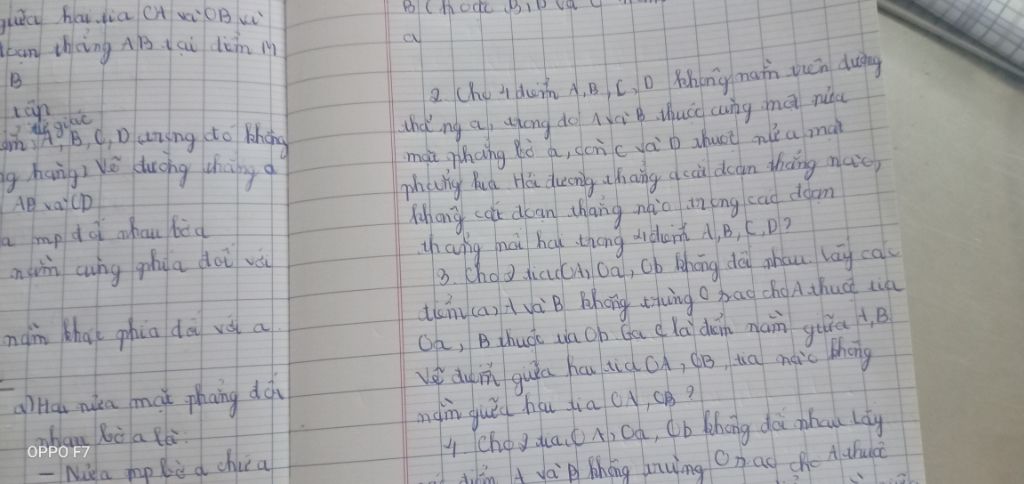 giữa hai tia OA và OB
đoạn thẳng AB tại điểm M
B
A, B, C, D trong đó không
thẳng hàng, Vẽ đường thẳng a
AB và CD
mp đối nhau bờ a
nằm cùng phía đối với
nằm khác phía đối với a
a) Hai nửa mặt phẳng đối
nhau bờ a là:
- Nửa mp bờ a chứa
OPPO F7
a
2. Cho 4 điểm A, B, C, D không nằm trên đường
thẳng a, trong đó A và B thuộc cùng một nửa
mặt phẳng bờ a, còn C và D thuộc nửa mặt
phẳng kia Hỏi đường thẳng a cắt đoạn thẳng nào,
không cắt đoạn thẳng nào trong các đoạn
thẳng nối hai trong 4 điểm A, B, C, D?
3. Cho 2 tia Oa, Ob không đối nhau lấy các
điểm A và B không trùng O sao cho A thuộc tia
Oa, B thuộc tia Ob Gọi C là điểm nằm giữa A, B
Vẽ điểm giữa hai tia OA, OB, tia nào không
nằm giữa hai tia OA, OB?
4. Cho 2 tia Oa, Ob không đối nhau lấy
điểm A và B không trùng O sao cho A thuộc